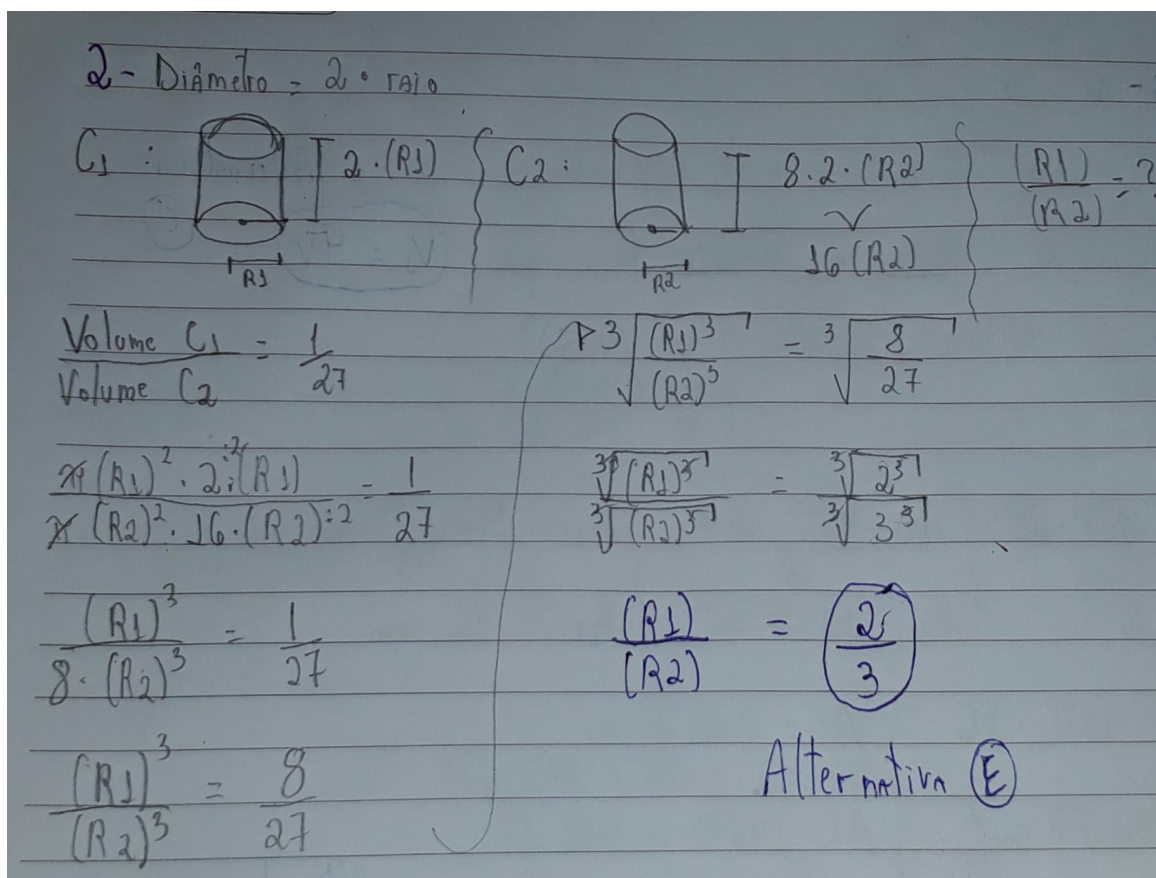 2 - Diâmetro = 2 • raio
C1 : 2 . (R1)
R1
C2 : 8 . 2 . (R2)
16 (R2)
R2
(R1) / (R2) = ?
Volume C1 / Volume C2 = 1 / 27
π (R1)² . 2:2 . (R1) / π (R2)² . 16 . (R2):2 = 1 / 27
(R1)³ / 8 . (R2)³ = 1 / 27
(R1)³ / (R2)³ = 8 / 27
3√(R1)³ / (R2)³ = 3√8 / 27
3√(R1)³ / 3√(R2)³ = 3√2³ / 3√3³
(R1) / (R2) = 2 / 3
Alternativa E